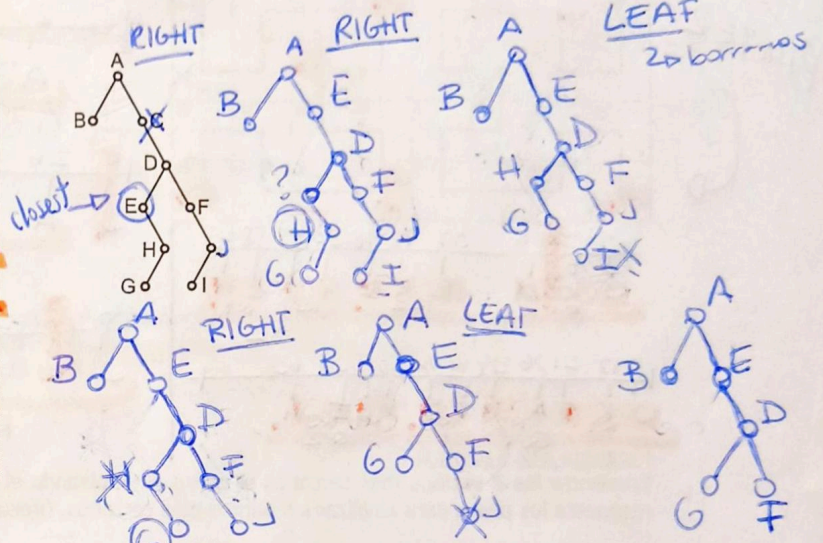 RIGHT
A
B
C
D
closest
E
F
H
J
G
I
RIGHT
A
B
E
D
?
F
H
J
G
I
LEAF
A
B
E
D
H
F
G
J
I
RIGHT
A
B
E
D
H
F
G
J
LEAF
A
B
E
D
G
F
J
A
B
E
D
G
F